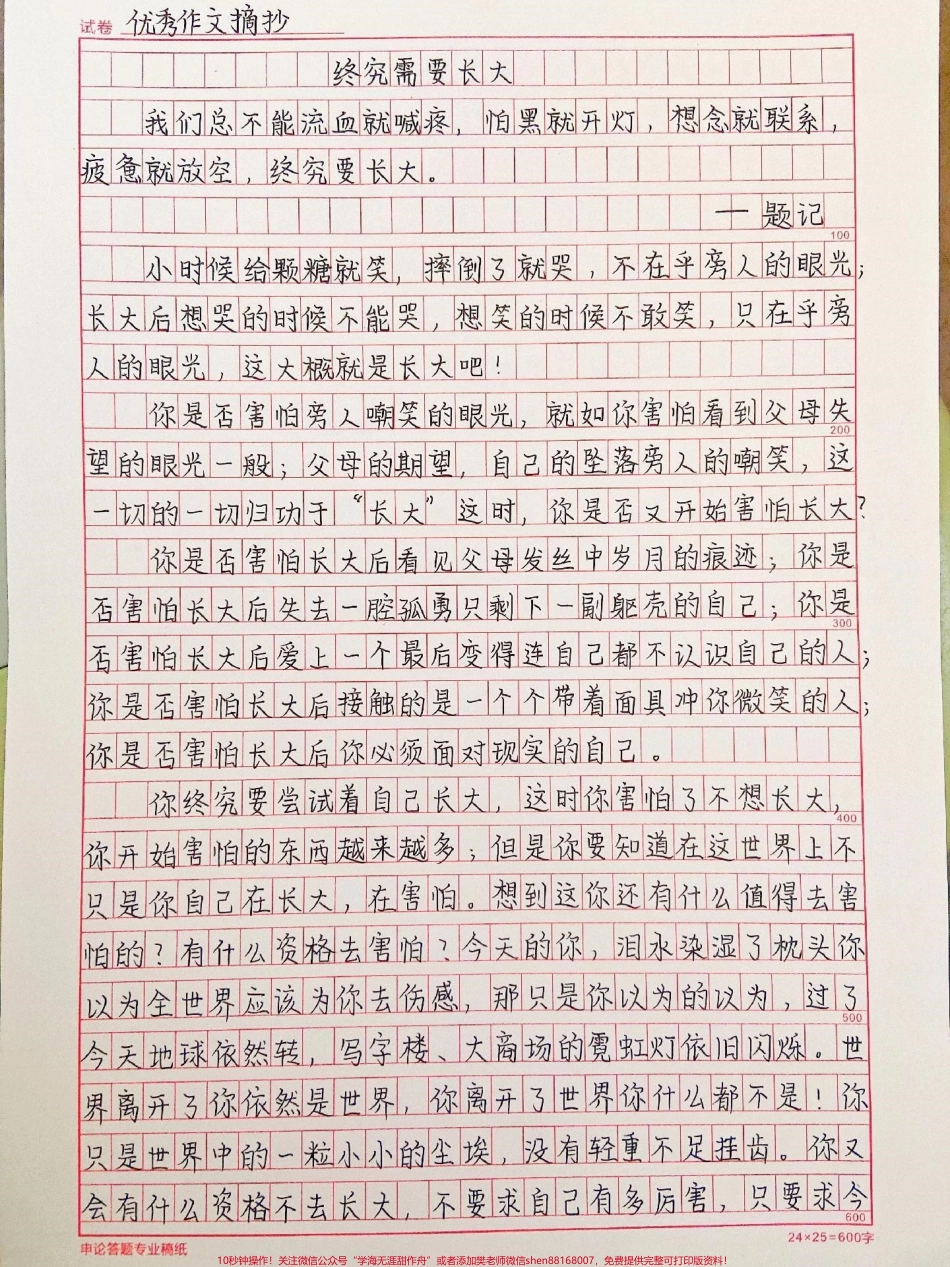 试卷 优秀作文摘抄
终究需要长大
我们总不能流血就喊疼，怕黑就开灯，想念就联系，
疲惫就放空，终究要长大。
— 题记
100
小时候给颗糖就笑，摔倒了就哭，不在乎旁人的眼光；
长大后想哭的时候不能哭，想笑的时候不敢笑，只在乎旁
人的眼光，这大概就是长大吧！
你是否害怕旁人嘲笑的眼光，就如你害怕看到父母失
200
望的眼光一般；父母的期望，自己的坠落旁人的嘲笑，这
一切的一切归功于“长大”这时，你是否又开始害怕长大？
你是否害怕长大后看见父母发丝中岁月的痕迹；你是
否害怕长大后失去一腔孤勇只剩下一副躯壳的自己；你是
300
否害怕长大后爱上一个最后变得连自己都不认识自己的人；
你是否害怕长大后接触的是一个个带着面具冲你微笑的人；
你是否害怕长大后你必须面对现实的自己。
你终究要尝试着自己长大，这时你害怕了不想长大，
400
你开始害怕的东西越来越多；但是你要知道在这世界上不
只是你自己在长大，在害怕。想到这你还有什么值得去害
怕的？有什么资格去害怕？今天的你，泪水染湿了枕头你
以为全世界应该为你去伤感，那只是你以为的以为，过了
500
今天地球依然转，写字楼、大商场的霓虹灯依旧闪烁。世
界离开了你依然是世界，你离开了世界你什么都不是！你
只是世界中的一粒小小的尘埃，没有轻重不足挂齿。你又
会有什么资格不去长大，不要求自己有多厉害，只要求今
600
申论答题专业稿纸
24×25=600字
10秒钟操作！关注微信公众号“学海无涯甜作舟”或者添加樊老师微信shen88168007，免费提供完整可打印版资料！